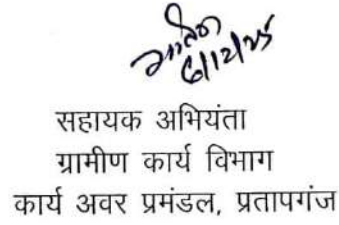 सहायक अभियंता
ग्रामीण कार्य विभाग
कार्य अवर प्रमंडल, प्रतापगंज